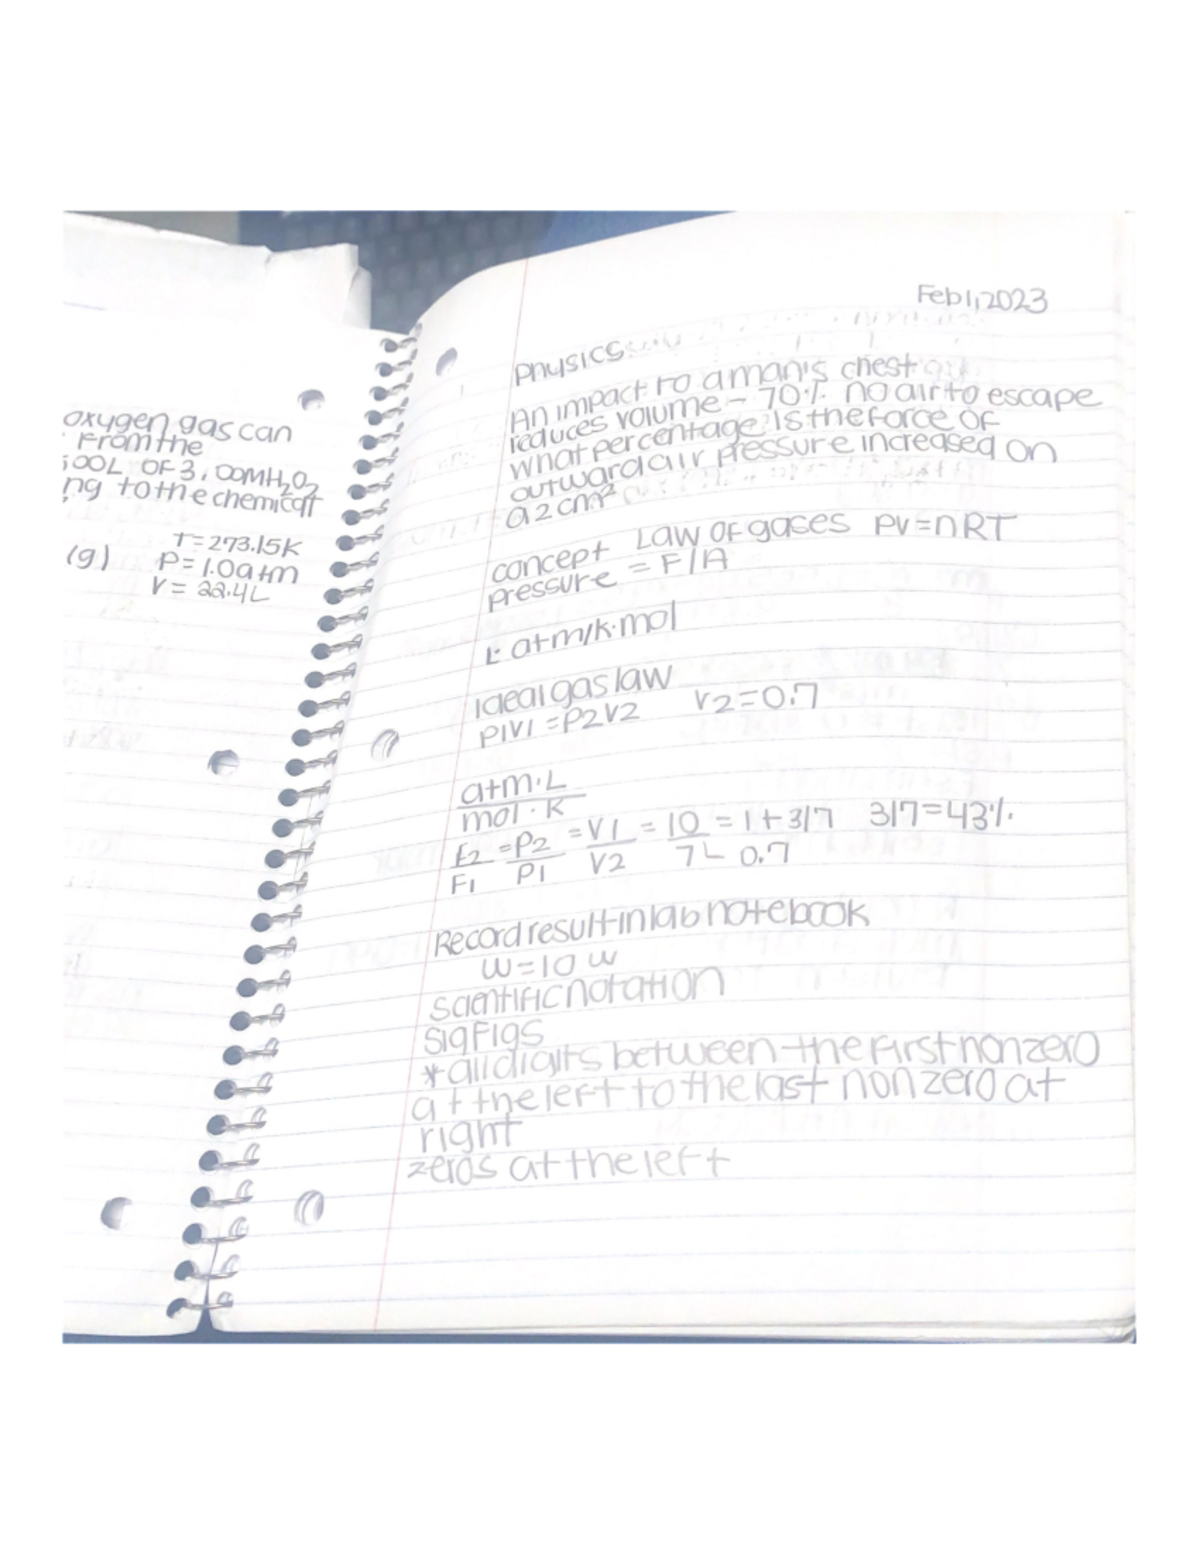 oxygen gas can
From the
500L OF 3.00M H2O2
ng to the chemical
(g) T=273.15K
P=1.0atm
V=22.4L
Feb 1, 2023
Physics
An impact to a man's chest
reduces volume - 70% no air to escape
what percentage is the force of
outward air pressure increased on
a 2 cm²
concept Law of gases PV=nRT
pressure = F/A
L·atm/K·mol
Ideal gas law
P1V1=P2V2 V2=0.7
atm·L
mol·K
F2 = P2 = V1 = 10 = 1+3/7 3/7=43%
F1 P1 V2 7 0.7
Record result in lab notebook
w=10 w
scientific notation
sig Figs
* all digits between the first nonzero
at the left to the last nonzero at
right
zeros at the left